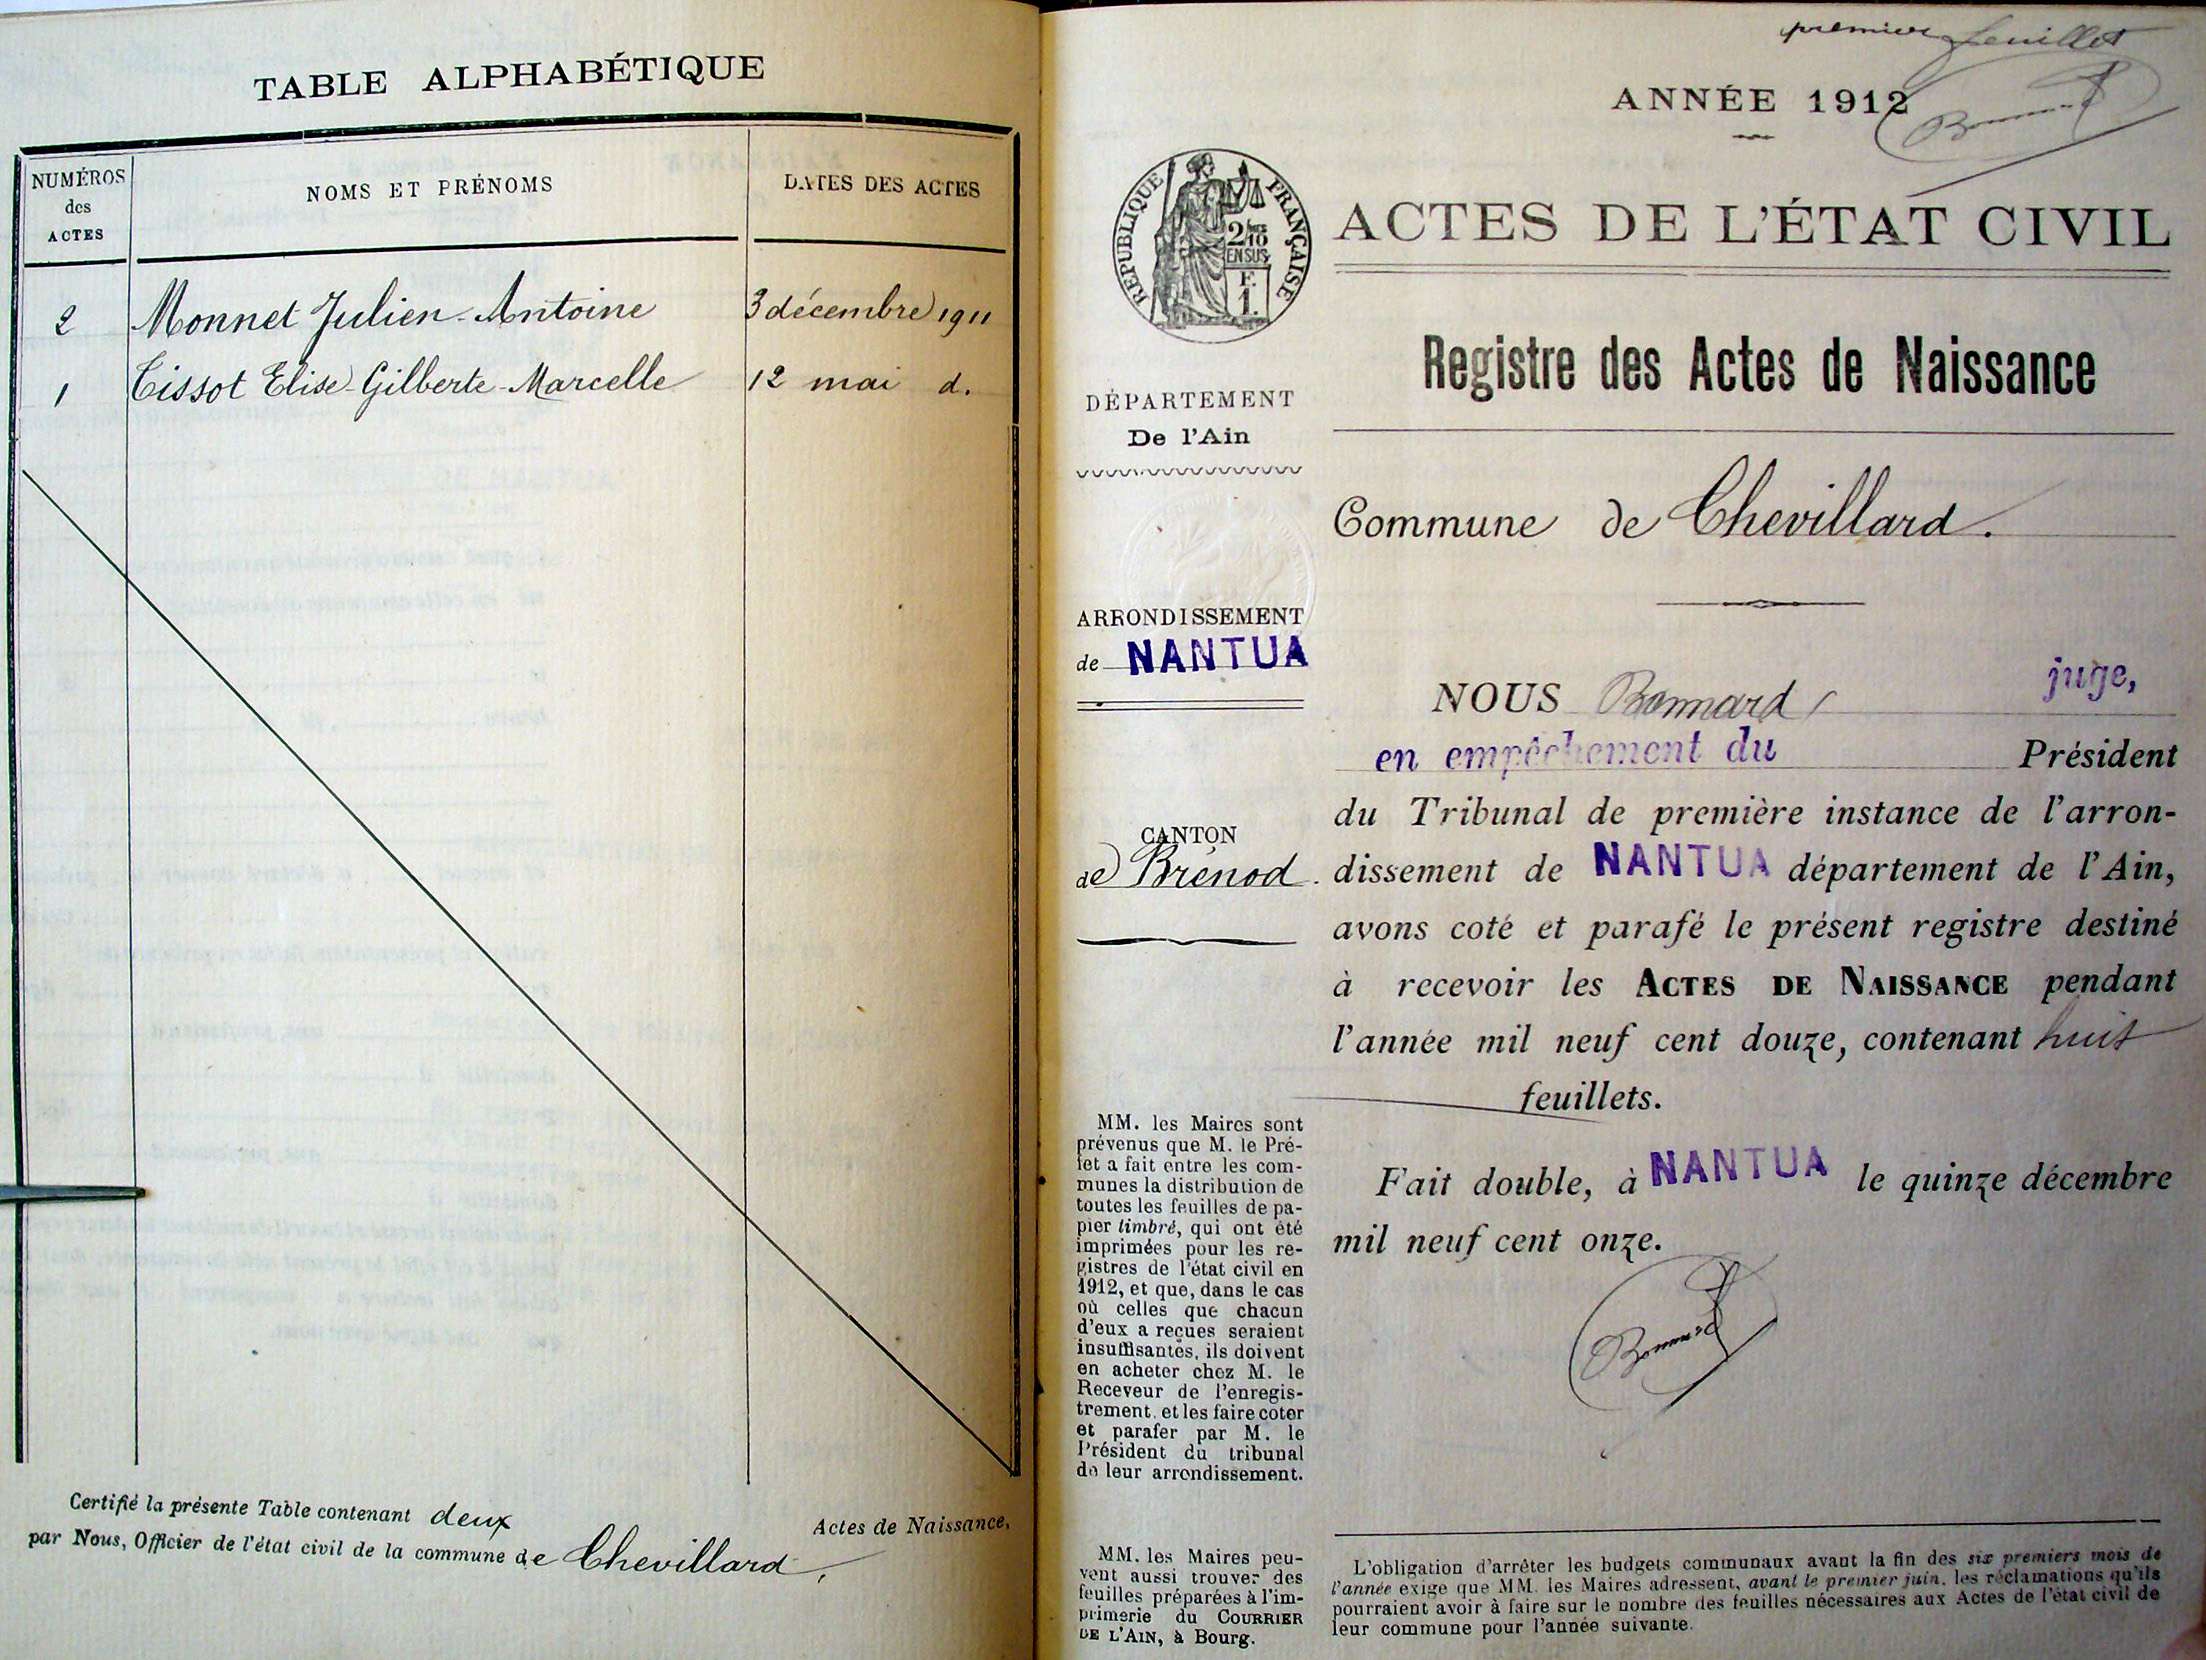 TABLE ALPHABÉTIQUE
NUMÉROS
des
ACTES
NOMS ET PRÉNOMS
DATES DES ACTES
2 Monnet Julien-Antoine 3 décembre 1911
1 Tissot Elise-Gilberte-Marcelle 12 mai d.
Certifié la présente Table contenant deux Actes de Naissance,
par Nous, Officier de l'état civil de la commune de Chevillard.
premier feuillet
Bonnard
ANNÉE 1912
RÉPUBLIQUE FRANÇAISE
2/10
EN SUS
F.
1.
ACTES DE L'ÉTAT CIVIL
Registre des Actes de Naissance
DÉPARTEMENT
De l'Ain
Commune de Chevillard.
ARRONDISSEMENT
de NANTUA
CANTON
de Brénod.
NOUS Bonnard, juge,
en empêchement du Président
du Tribunal de première instance de l'arron-
dissement de NANTUA département de l'Ain,
avons coté et parafé le présent registre destiné
à recevoir les ACTES DE NAISSANCE pendant
l'année mil neuf cent douze, contenant huit
feuillets.
Fait double, à NANTUA le quinze décembre
mil neuf cent onze.
Bonnard
MM. les Maires sont
prévenus que M. le Pré-
fet a fait entre les com-
munes la distribution de
toutes les feuilles de pa-
pier timbré, qui ont été
imprimées pour les re-
gistres de l'état civil en
1912, et que, dans le cas
où celles que chacun
d'eux a reçues seraient
insuffisantes, ils doivent
en acheter chez M. le
Receveur de l'enregis-
trement, et les faire coter
et parafer par M. le
Président du tribunal
de leur arrondissement.
MM. les Maires peu-
vent aussi trouver des
feuilles préparées à l'im-
primerie du COURRIER
DE L'AIN, à Bourg.
L'obligation d'arrêter les budgets communaux avant la fin des six premiers mois de
l'année exige que MM. les Maires adressent, avant le premier juin, les réclamations qu'ils
pourraient avoir à faire sur le nombre des feuilles nécessaires aux Actes de l'état civil de
leur commune pour l'année suivante.